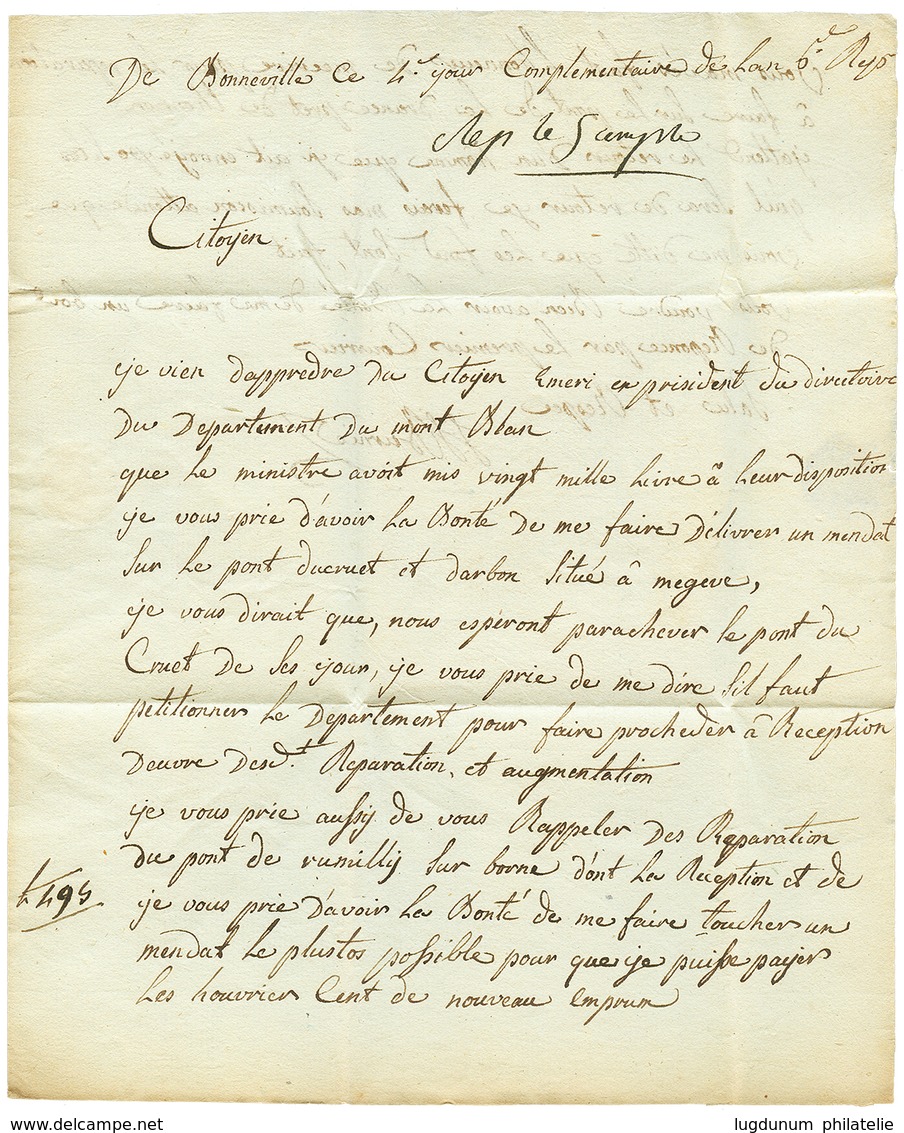 De Bonneville Ce 4.e jour Complementaire de Lan 6.e Rep
Rep le
Citoyen
je vien dappredre du Citoyen Emeri ex president du directoire
Du Departement du mont Blan
que Le ministre avoit mis vingt mille Livre â Leur disposition
je vous prie d'avoir La Bonté De me faire Délivrer un mendat
Sur Le pont ducruet et darbon Situé â megeve,
je vous dirait que, nous espéront parachever le pont du
Cruet De Ses jour, je vous prie de me dire Sil faut
petitionner Le Departement pour faire procheder â Reception
Deuvre Desd.t Reparation, et augmentation
je vous prie aussy de vous Rappeler Des Reparation
Du pont de rumilly Sur borne d'ont La Reception et de
L 495
je vous prie D'avoir La Bonté de me faire toucher un
mendat Le plustos possible pour que je puisse payer
Les houvrier Cent de nouveau Emprun
www.delcampe.net
lugdunum philatelie